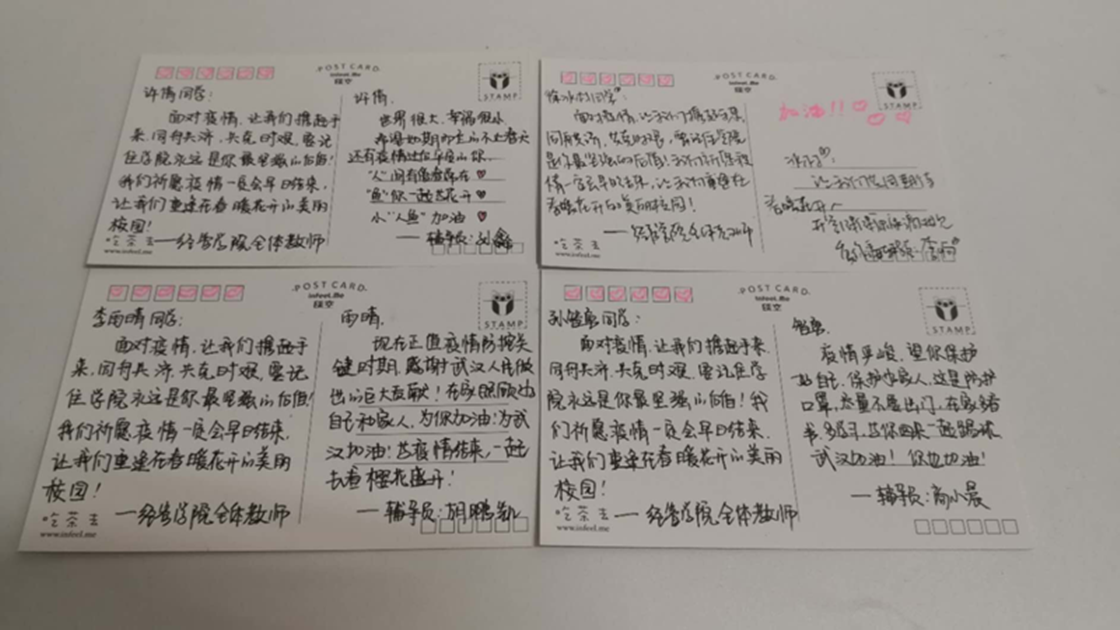 POST CARD
infeel.Me
STAMP
许倩同学:
面对疫情,让我们携起手
来,同舟共济,共克时艰,要记
住学院永远是你最坚强的后盾!
我们祈愿疫情一定会早日结束,
让我们重逢在春暖花开的美丽
校园!
吃茶去
——经管学院全体教师
www.infeel.me
许倩,
世界很大,幸福很小
还有疫情过后平安的你...
"人"间有你
"鱼"你一起
小"人鱼"加油
——辅导员:刘鑫
POST CARD
infeel.Me
STAMP
同学:
面对疫情,让我们携起手来,
同舟共济,共克时艰,要记住学院
是你最坚强的后盾!我们祈愿疫
情一定会早日结束,让我们重逢在
春暖花开的美丽校园!
吃茶去
——经管学院全体教师
www.infeel.me
加油!!
让我们共同期待
春暖花开
POST CARD
infeel.Me
STAMP
李雨晴同学:
面对疫情,让我们携起手
来,同舟共济,共克时艰,要记
住学院永远是你最坚强的后盾!
我们祈愿疫情一定会早日结束,
让我们重逢在春暖花开的美丽
校园!
吃茶去
——经管学院全体教师
www.infeel.me
雨晴,
现在正值疫情防控关
键时期,感谢武汉人民做
出的巨大贡献!在家照顾好
自己和家人,为你加油!为武
汉加油!等疫情结束,一起
去看樱花盛开!
——辅导员:胡鹏凯
POST CARD
infeel.Me
STAMP
同学:
面对疫情,让我们携起手来,
同舟共济,共克时艰,要记住学
院永远是你最坚强的后盾!我
们祈愿疫情一定会早日结束,
让我们重逢在春暖花开的美丽
校园!
吃茶去
——经管学院全体教师
www.infeel.me
疫情严峻,望你保护
好自己,保护好家人,这是防护
口罩,尽量不要出门,在家多看
武汉加油!你也加油!
——辅导员:高小晨